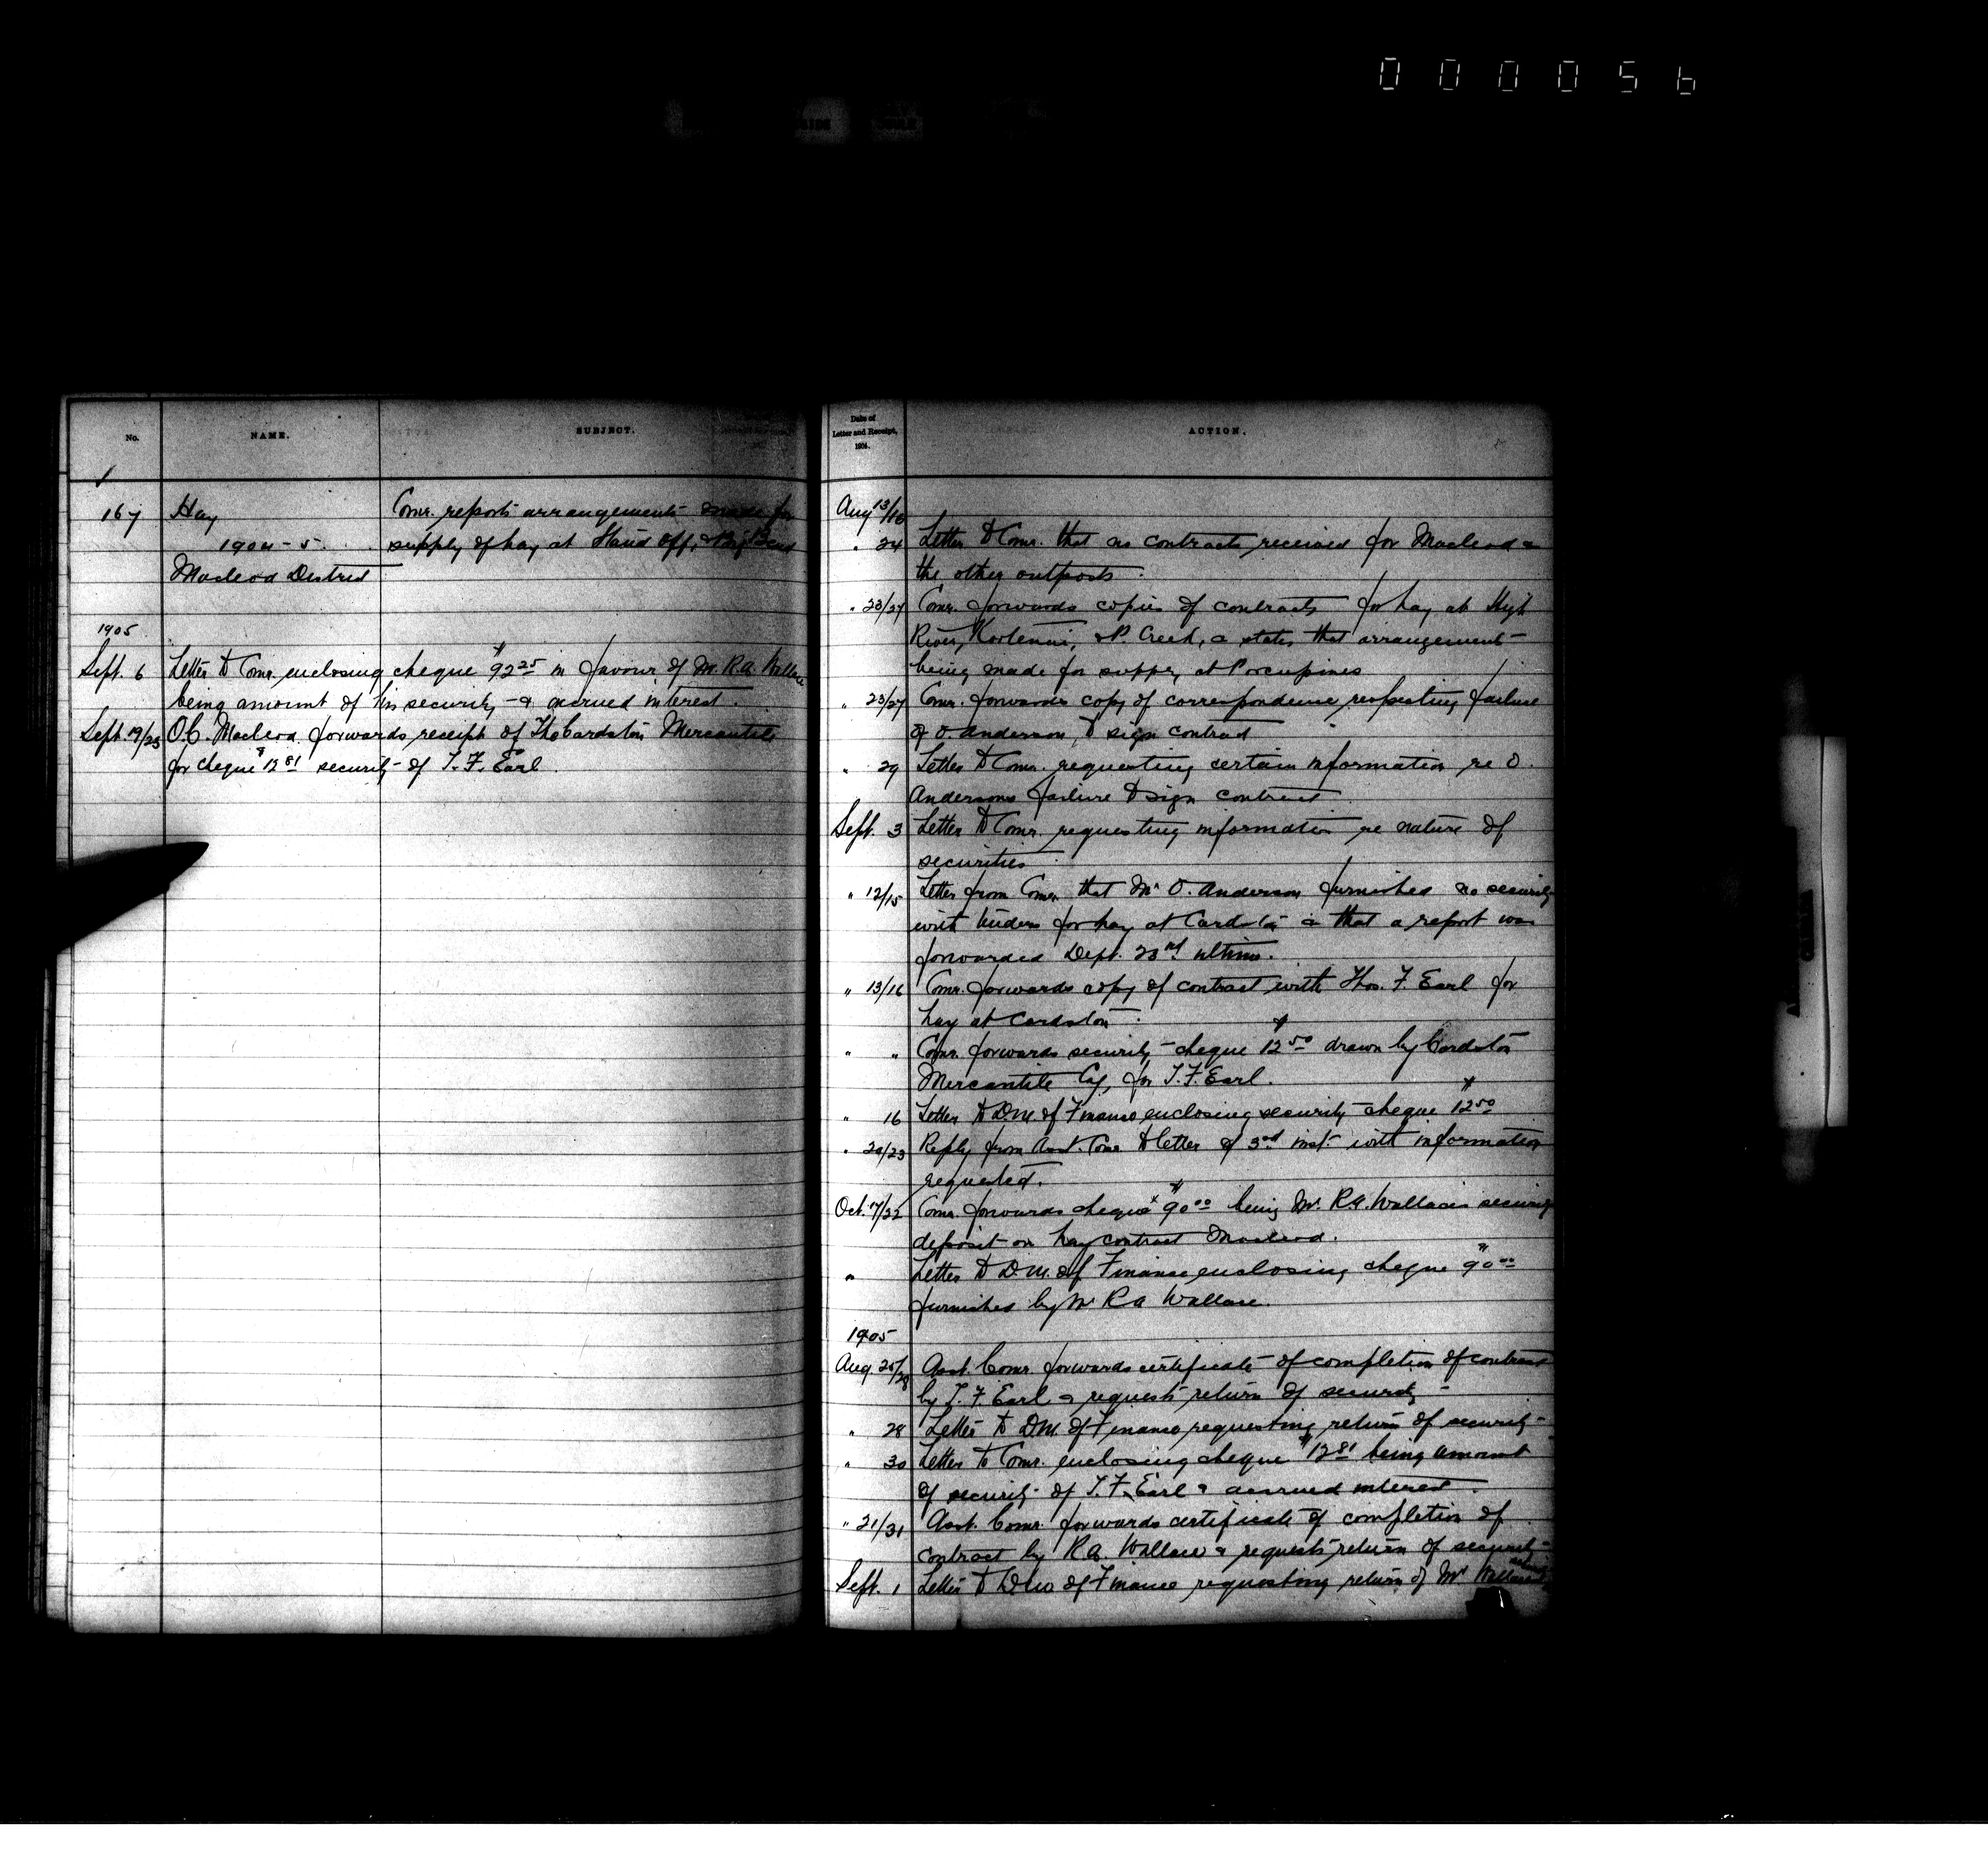 000056
No. NAME. SUBJECT.
167 Hay Comr. reports arrangements made for
1904-5. supply of hay at Stand Off, & Big Bend
Macleod District
1905
Sept. 6 Letter to Comr. enclosing cheque $92 25 in favour of Mr. R.A. Wallace
being amount of his security & accrued interest.
Sept. 19/25 O.C. Macleod forwards receipt of The Cardston Mercantile
for cheque $12 81 security of T. F. Earl.
Date of
Letter and Receipt,
1904.
ACTION.
Aug 13/18
" 24 Letter to Comr. that no contracts received for Macleod &
the other outposts.
" 23/27 Comr. forwards copies of contracts for hay at High
River, Kootenai, & P. Creek, & states that arrangements
being made for supply at Porcupines
" 23/27 Comr. forwards copy of correspondence respecting failure
of O. Anderson, to sign contract
" 29 Letter to Comr. requesting certain information re O.
Andersons failure to sign contract
Sept. 3 Letter to Comr. requesting information re nature of
securities.
" 12/15 Letter from Comr. that Mr. O. Anderson furnished no security
with tenders for hay at Cardston & that a report was
forwarded Dept. 23rd ultimo.
" 13/16 Comr. forwards copy of contract with Thos. F. Earl for
hay at Cardston.
" " Comr. forwards security cheque $12 50 drawn by Cardston
Mercantile Coy, for T. F. Earl.
" 16 Letter to D.M. of Finance enclosing security cheque $12 50
" 20/23 Reply from Asst. Comr. to letter of 3rd inst. with information
requested.
Oct. 17/22 Comr. forwards cheque $90 00 being Mr. R.A. Wallaces security
deposit on hay contract Macleod.
" Letter to D.M. of Finance enclosing cheque $90 00
furnished by Mr R A Wallace.
1905
Aug. 25/28 Asst. Comr. forwards certificate of completion of contract
by T. F. Earl & requests return of security
" 28 Letter to D.M. of Finance requesting return of security
" 30 Letter to Comr. enclosing cheque $12 81 being amount
of security of T. F. Earl & accrued interest.
" 21/31 Asst. Comr. forwards certificate of completion of
contract by R A Wallace & requests return of security
Sept. 1 Letter to D.M. of Finance requesting return of Mr Wallace's